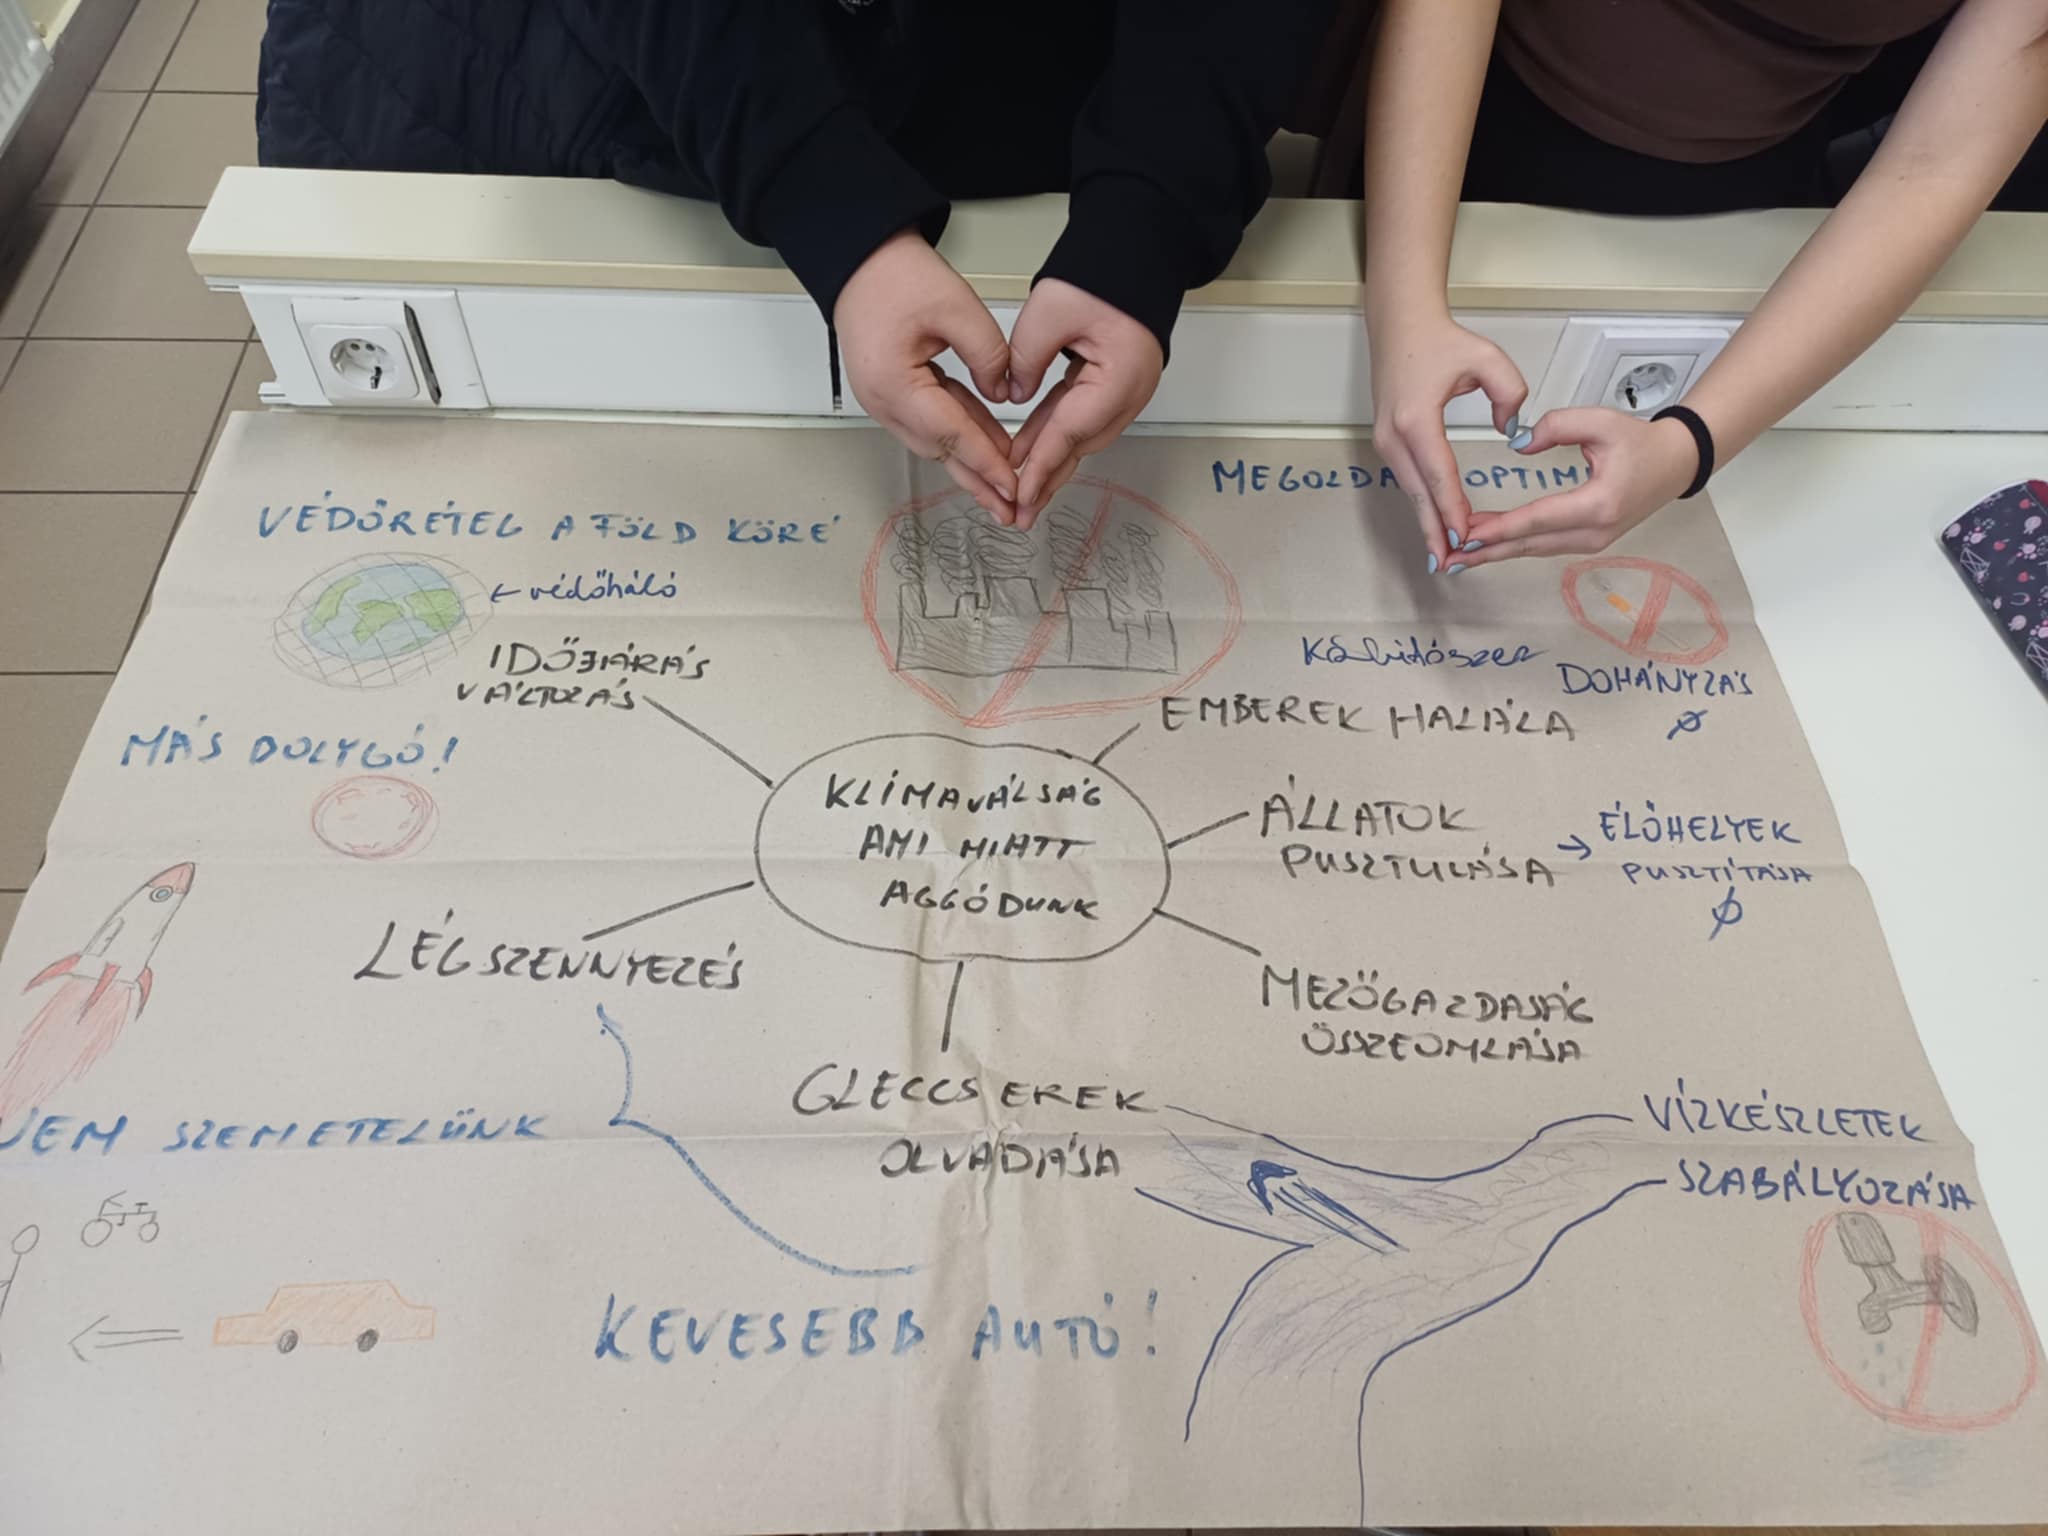 VÉDŐRÉTEG A FÖLD KÖRÉ
← védőháló
MEGOLDÁ OPTIMI
Kábítószer
DOHÁNYZÁS
Ø
IDŐJÁRÁS
VÁLTOZÁS
EMBEREK HALÁLA
MÁS BOLYGÓ!
KLÍMAVÁLSÁG
AMI MIATT
AGGÓDUNK
ÁLLATOK
PUSZTULÁSA
→ ÉLŐHELYEK
PUSZTÍTÁSA
Ø
LÉGSZENNYEZÉS
MEZŐGAZDASÁG
ÖSSZEOMLÁSA
GLECCSEREK
OLVADÁSA
VÍZKÉSZLETEK
SZABÁLYOZÁSA
NEM SZEMETELÜNK
KEVESEBB AUTÓ!